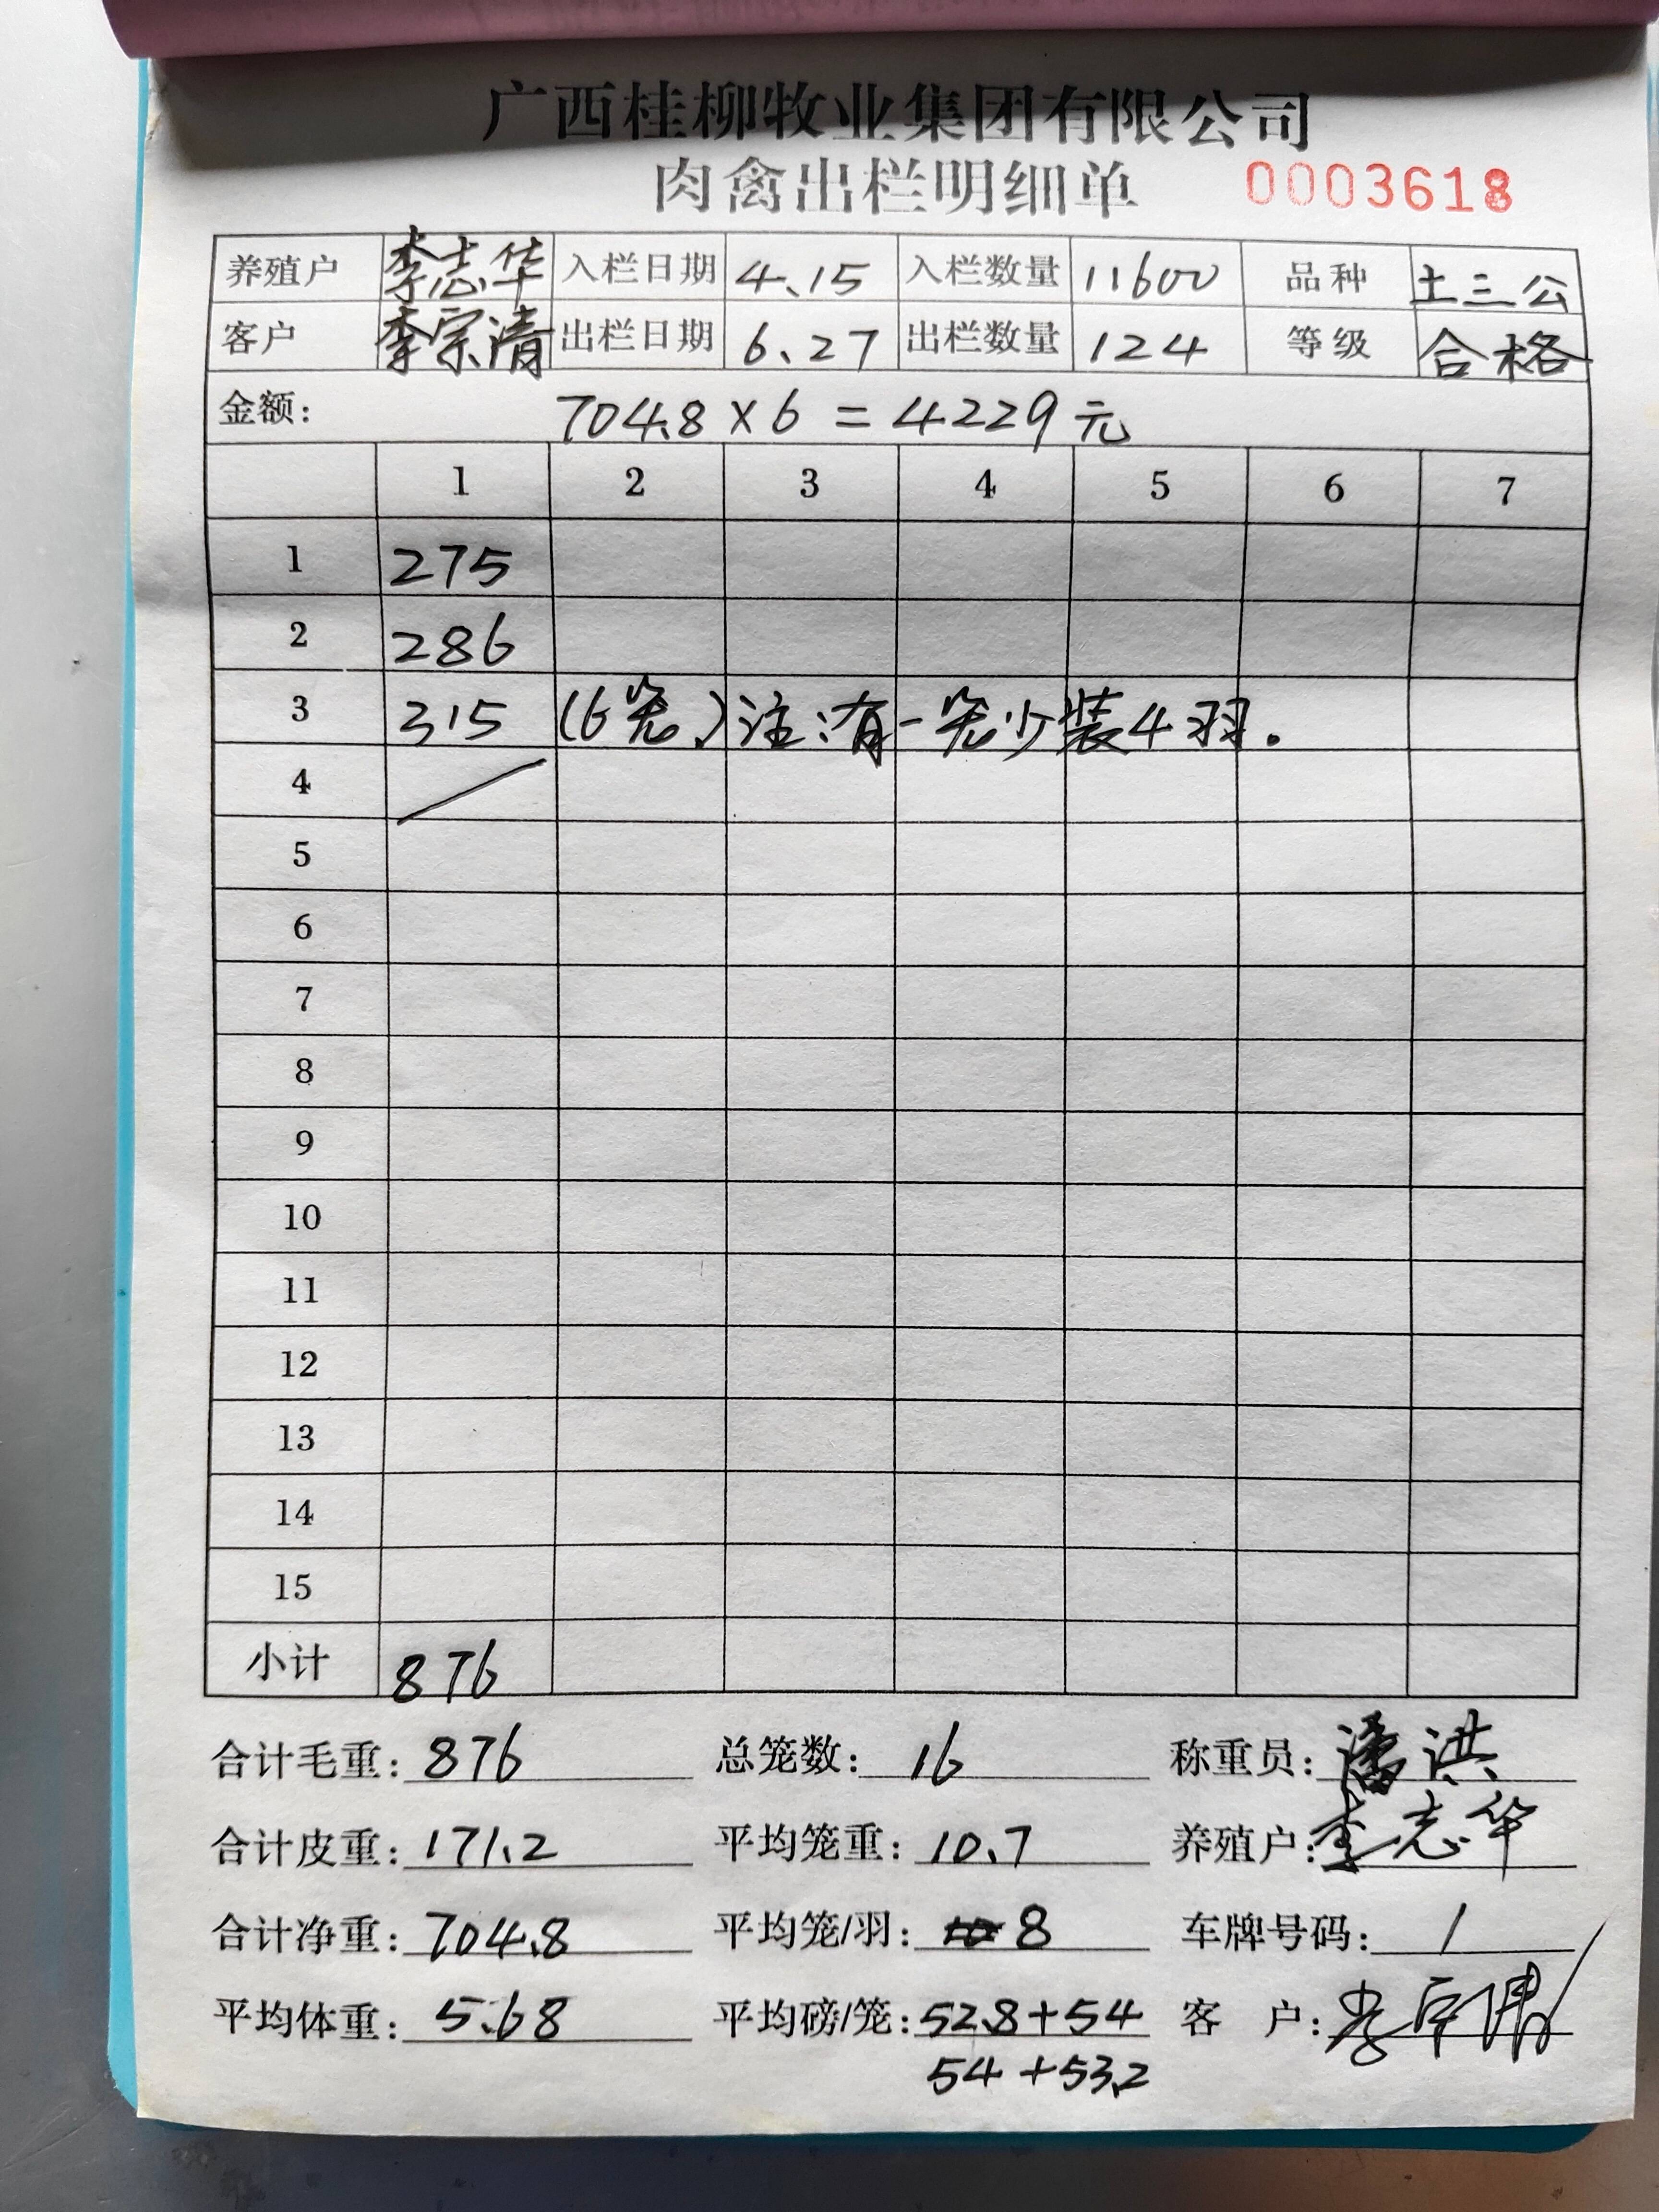 广西桂柳牧业集团有限公司
肉禽出栏明细单 0003618
养殖户 李志华 入栏日期 4.15 入栏数量 11600 品种 土三公
客户 李宗清 出栏日期 6.27 出栏数量 124 等级 合格
金额: 704.8×6=4229元
1 2 3 4 5 6 7
1 275
2 286
3 315 (6笼)注:有一笼少装4羽.
4
5
6
7
8
9
10
11
12
13
14
15
小计 876
合计毛重: 876 总笼数: 16 称重员: 潘洪
合计皮重: 171.2 平均笼重: 10.7 养殖户: 李志华
合计净重: 704.8 平均笼/羽: 8 车牌号码: /
平均体重: 5.68 平均磅/笼: 52.8+54 客 户:
54+53.2